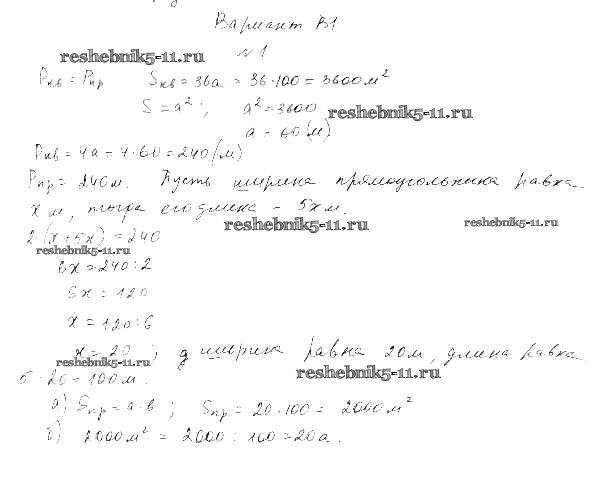 Вариант В1
№1
reshebnik5-11.ru
Pкв = Pпр Sкв = 36а = 36·100 = 3600 м²
S = a²; a² = 3600
reshebnik5-11.ru
a = 60 (м)
Pкв = 4a = 4·60 = 240 (м)
Pпр = 240м. Пусть ширина прямоугольника равна
x м, тогда его длина – 5x м.
reshebnik5-11.ru
reshebnik5-11.ru
2·(x+5x) = 240
reshebnik5-11.ru
6x = 240:2
6x = 120
x = 120:6
x = 20; ширина равна 20м, длина равна
reshebnik5-11.ru
reshebnik5-11.ru
5·20 = 100м.
а) Sпр = a·b; Sпр = 20·100 = 2000 м²
б) 2000м² = 2000:100 = 20а.